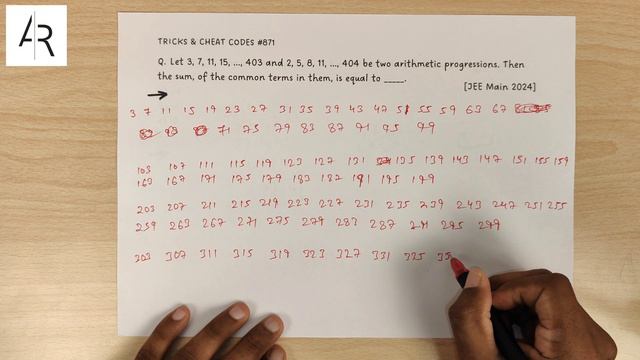 AR
TRICKS & CHEAT CODES #871
Q. Let 3, 7, 11, 15, ..., 403 and 2, 5, 8, 11, ..., 404 be two arithmetic progressions. Then
the sum, of the common terms in them, is equal to _____.
[JEE Main 2024]
3 7 11 15 19 23 27 31 35 39 43 47 51 55 59 63 67
71 75 79 83 87 91 95 99
103 107 111 115 119 123 127 131 135 139 143 147 151 155 159
163 167 171 175 179 183 187 191 195 199
203 207 211 215 219 223 227 231 235 239 243 247 251 255
259 263 267 271 275 279 283 287 291 295 299
303 307 311 315 319 323 327 331 325